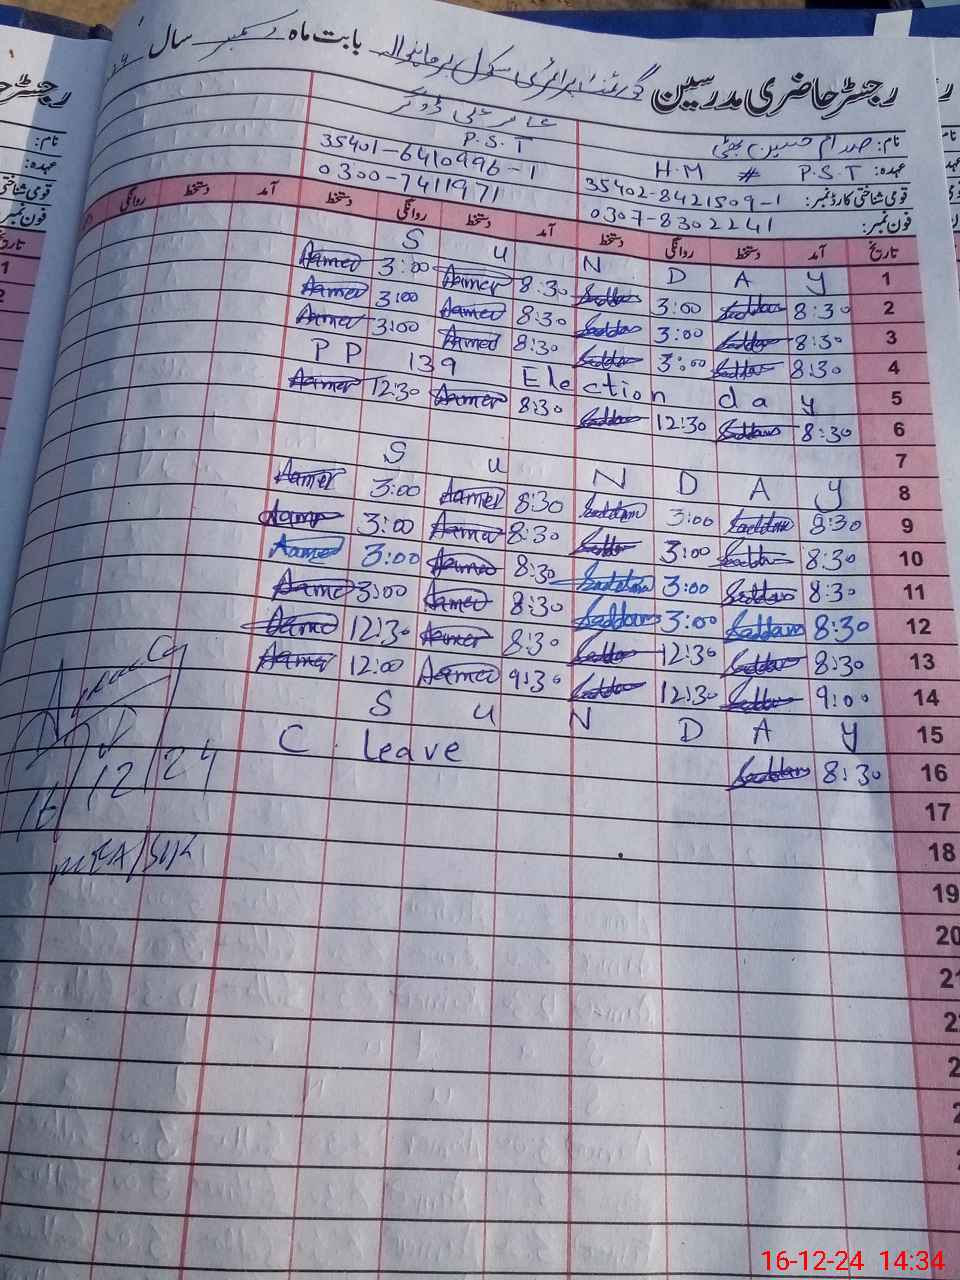 رجسٹر حاضری مدرسین گورنمنٹ پرائمری سکول بابت ماہ دسمبر سال
نام: صدام حسین بھٹی
عہدہ: P.S.T # H.M P.S.T
قومی شناختی کارڈ نمبر: 35402-8421509-1 35401-6410996-1
فون نمبر: 0307-8302241 0300-7411971
تاریخ آمد دستخط روانگی دستخط آمد دستخط روانگی دستخط آمد دستخط روانگی
1 S u N D A y
2 8:30 Saddam 3:00 Saddam 8:30 Aamer 3:00 Aamer
3 8:30 Saddam 3:00 Saddam 8:30 Aamer 3:00 Aamer
4 8:30 Saddam 3:00 Saddam 8:30 Aamer 3:00 Aamer
5 PP 139 Election day
6 8:30 Saddam 12:30 Saddam 8:30 Aamer 12:30 Aamer
7
8 S u N D A y
9 8:30 Saddam 3:00 Saddam 8:30 Aamer 3:00 Aamer
10 8:30 Saddam 3:00 Saddam 8:30 Aamer 3:00 Aamer
11 8:30 Saddam 3:00 Saddam 8:30 Aamer 3:00 Aamer
12 8:30 Saddam 3:00 Saddam 8:30 Aamer 3:00 Aamer
13 8:30 Saddam 12:30 Saddam 8:30 Aamer 12:30 Aamer
14 9:00 Saddam 12:30 Saddam 9:30 Aamer 12:00 Aamer
15 S u N D A y
16 8:30 Saddam C. leave
17
18
19
20
16/12/24
MEA/
16-12-24 14:34